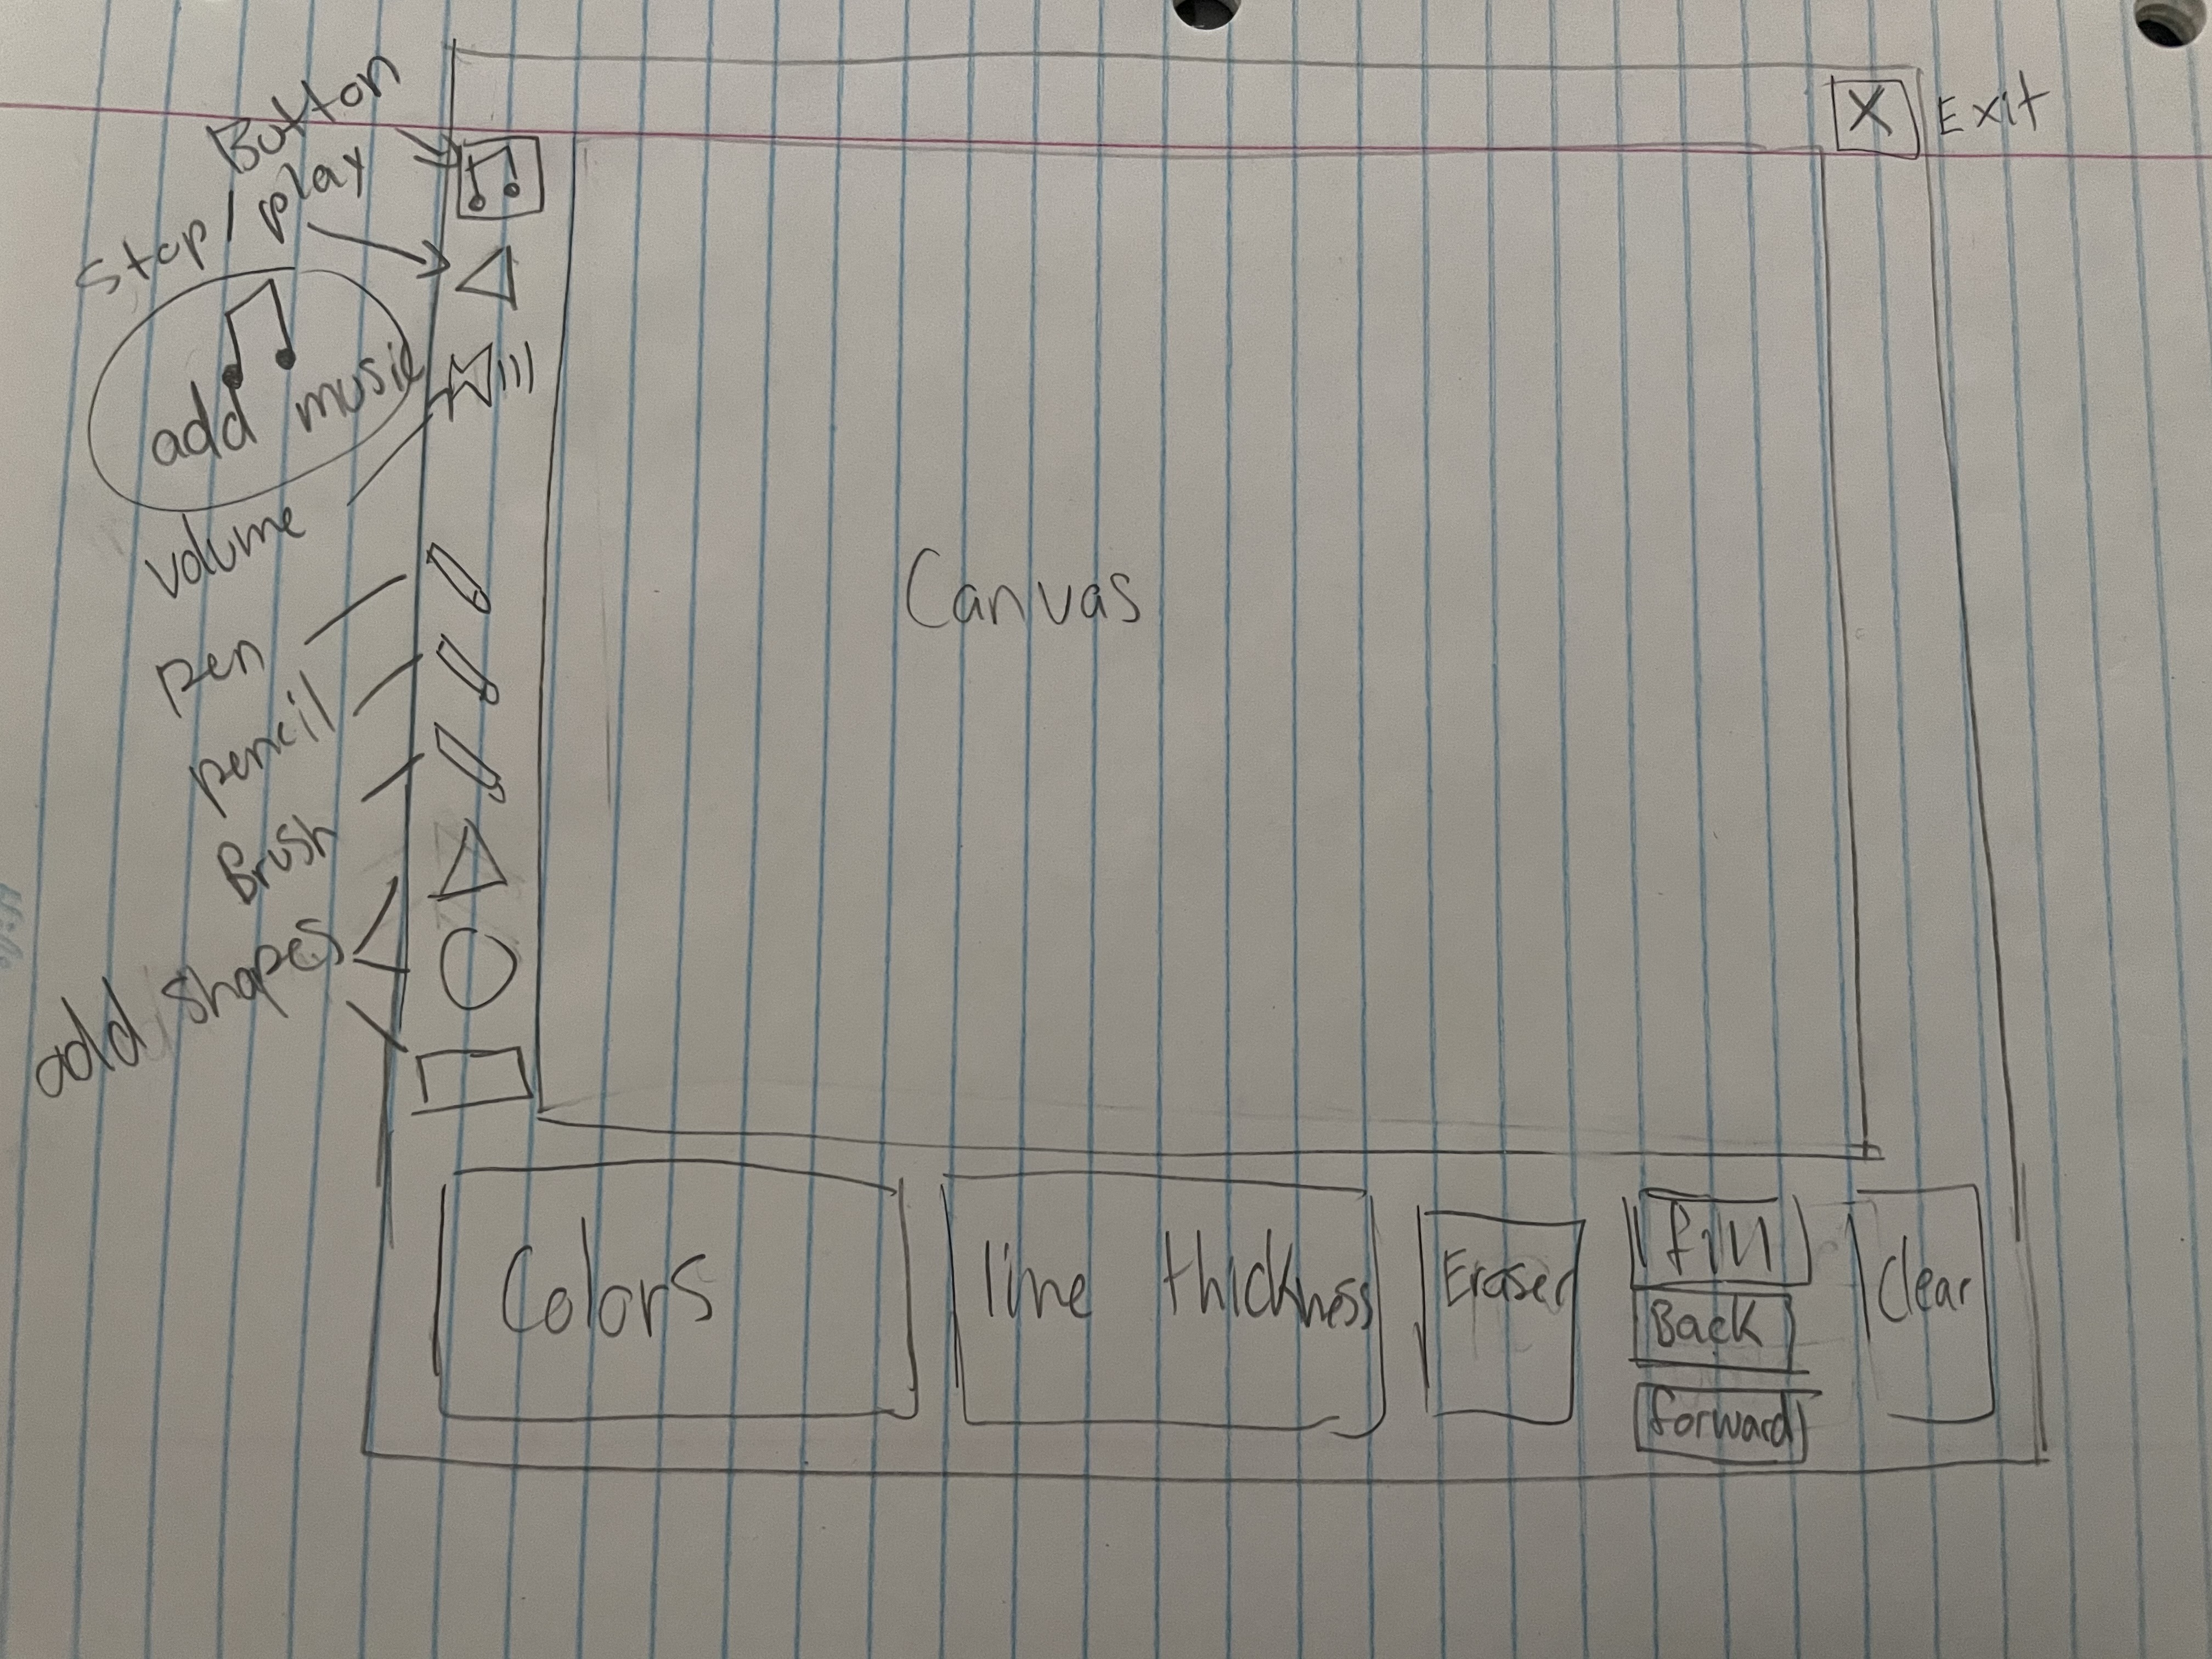 Button
X Exit
Stop / play
add music
volume
Canvas
pen
pencil
Brush
add shapes
Colors
line thickness
Eraser
fill
Back
forward
Clear